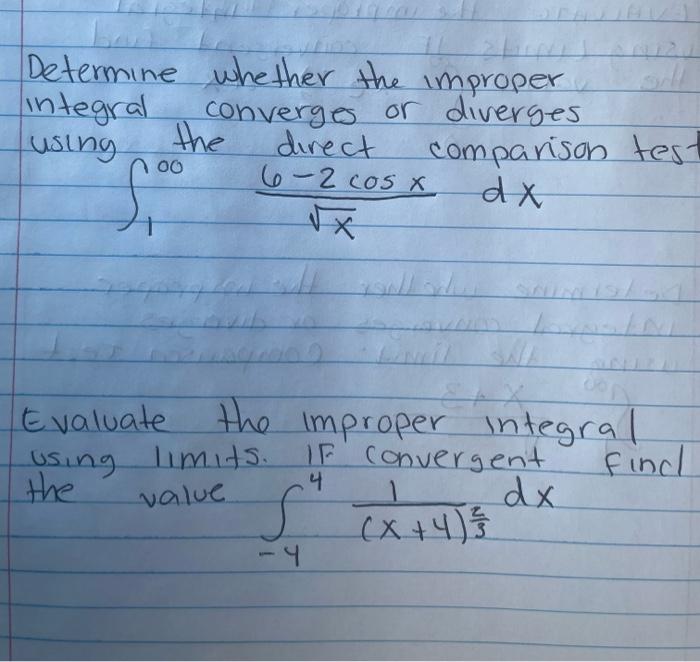 Determine whether the improper
integral converges or diverges
using the direct comparison test
∫₁^∞ (6 - 2 cos x)/√x dx
Evaluate the improper integral
using limits. IF convergent find
the value ∫₋₄^4 1/(x + 4)^(2/3) dx